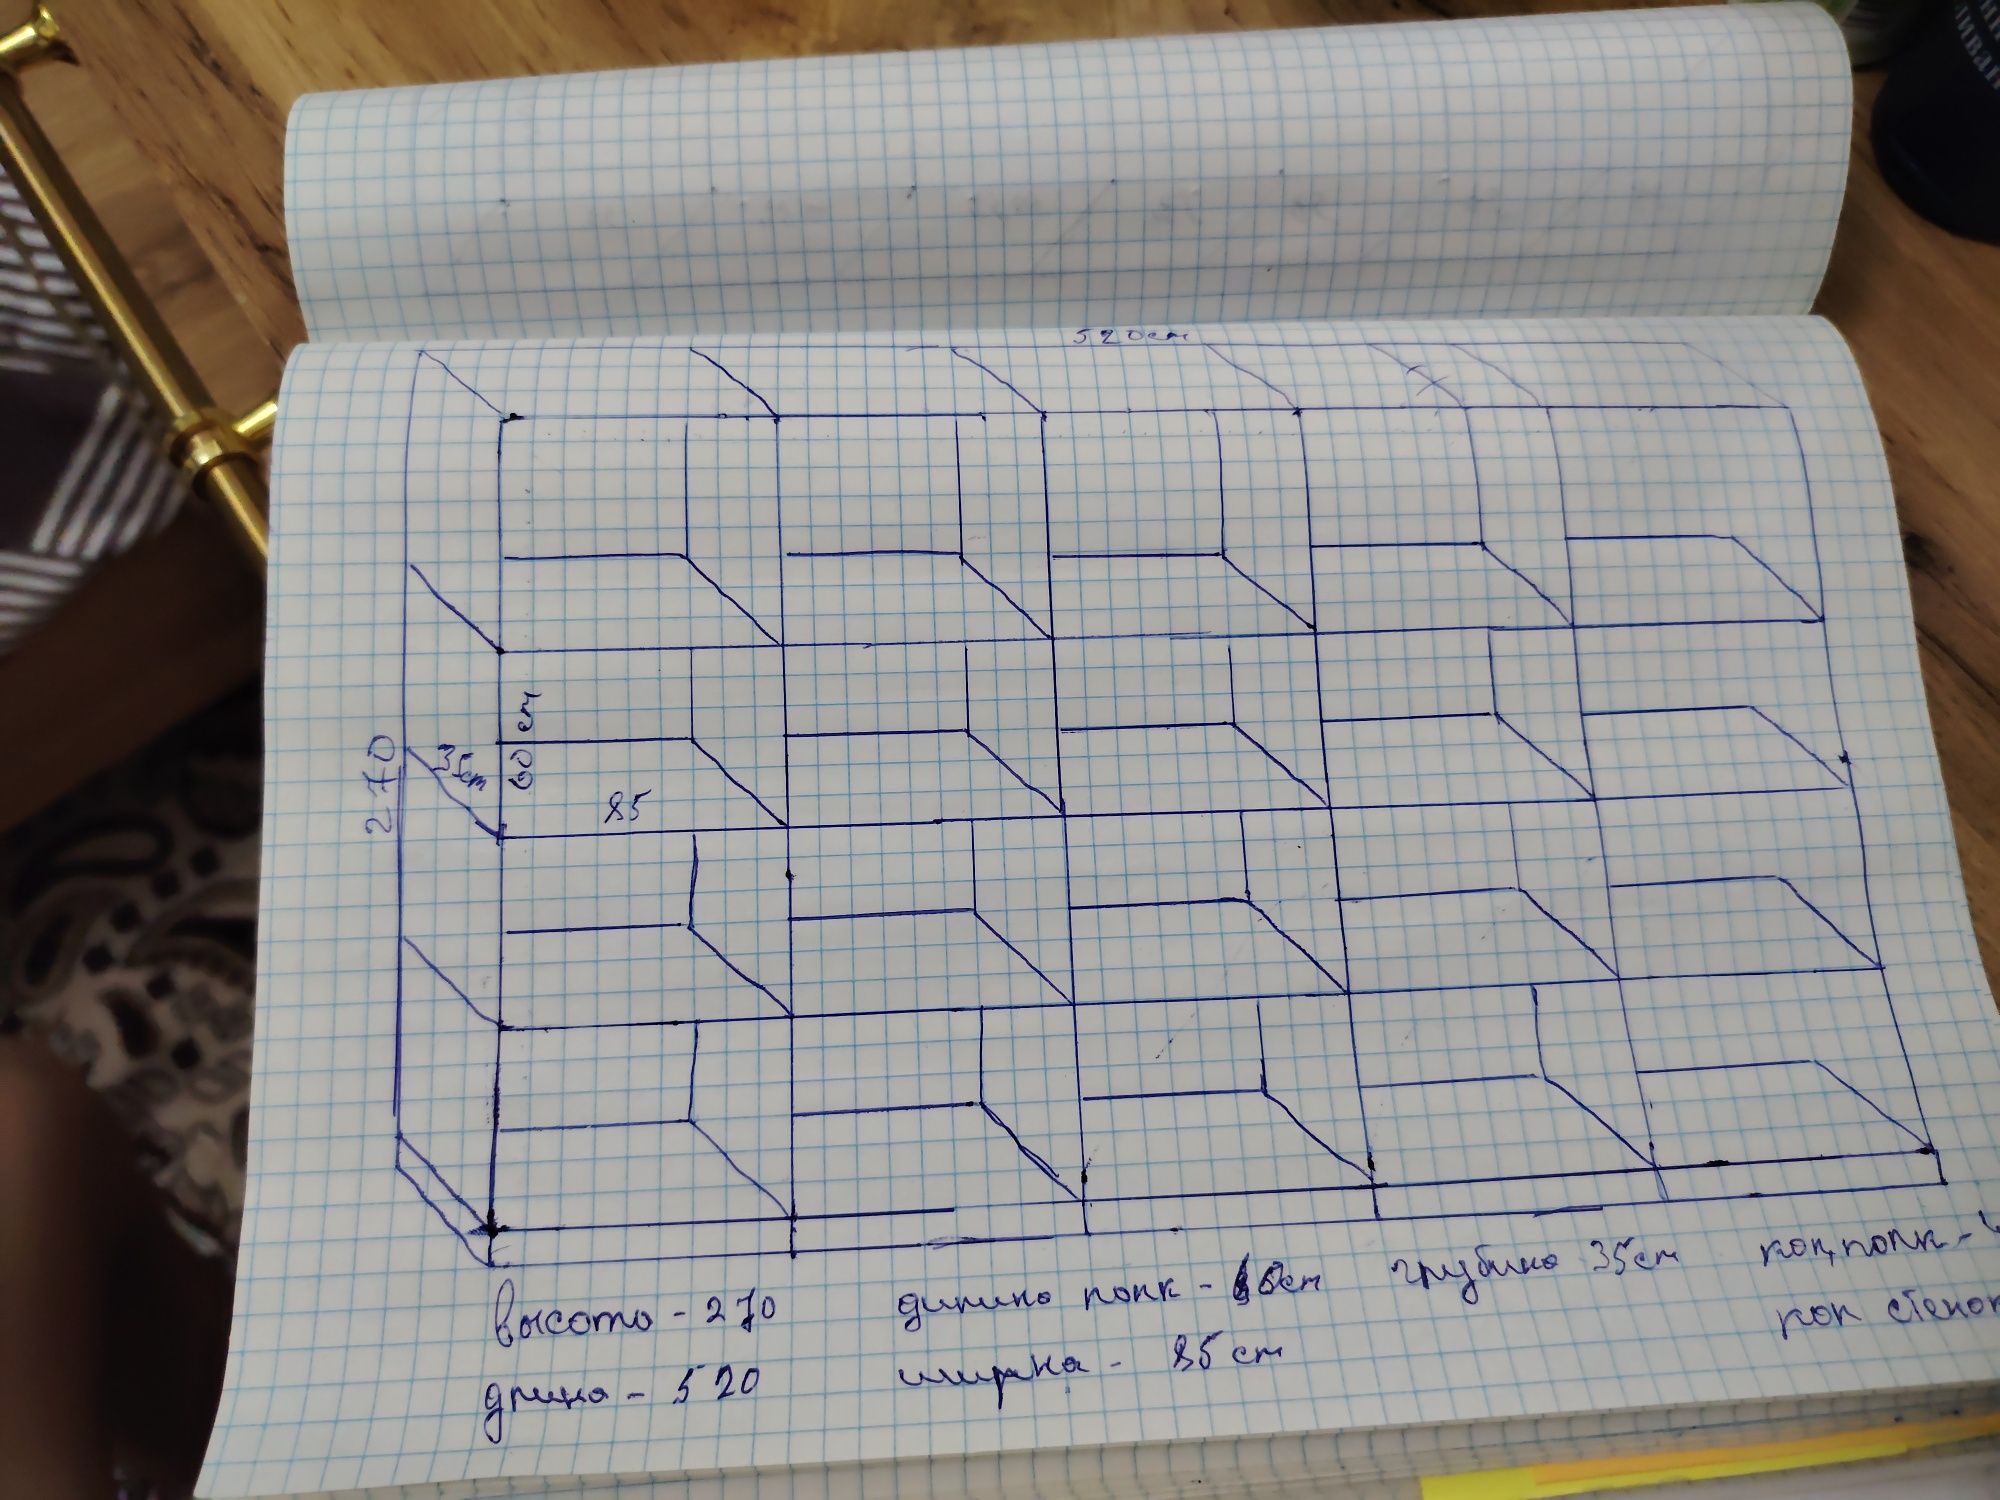 520см
270
35см
60 см
85
высота - 270
длина - 520
длина полк - 60см
ширна - 85см
глубина 35см
кол, полк -
кол стенок